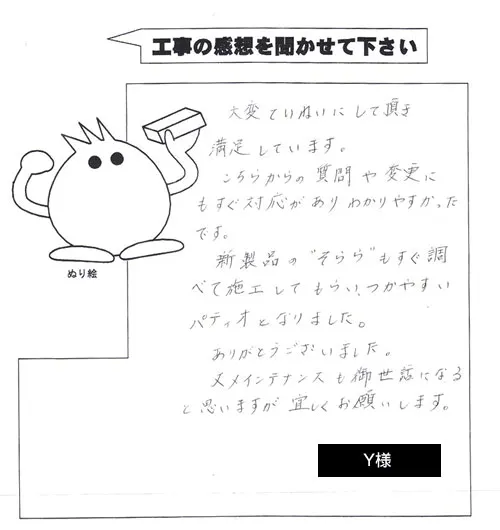 工事の感想を聞かせて下さい
大変ていねいにして頂き
満足しています。
こちらからの質問や変更に
もすぐ対応がありわかりやすかった
です。
新製品の"そらら"もすぐ調
べて施工してもらい、つかやすい
パティオとなりました。
ありがとうございました。
メインテナンスも御世話になる
と思いますが宜しくお願いします。
ぬり絵
Y様